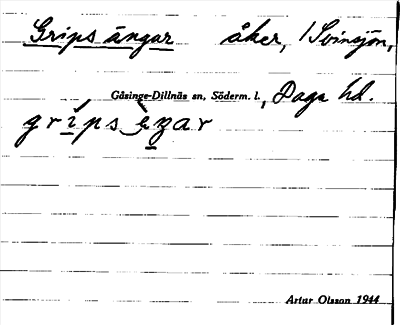 Grips ängar åker, 1 Svinsjön,
Gåsinge-Dillnäs sn, Söderm. l., Daga hd.
grips ęŋar
Artur Olsson 1944